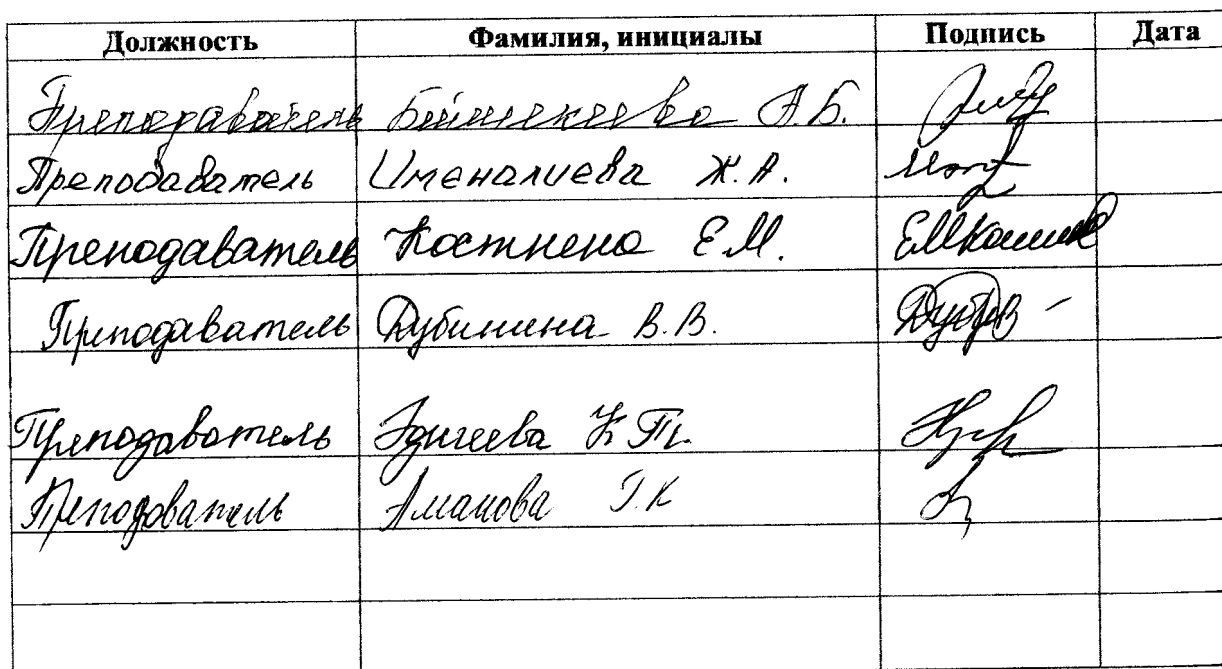 Должность Фамилия, инициалы Подпись Дата
Преподаватель Бейшекеева А.Б.
Преподаватель Именалиева Ж.А.
Преподаватель Е.М.
Преподаватель Дубинина В.В.
Преподаватель Эдигеева К.
Преподователь Аманова Г.К